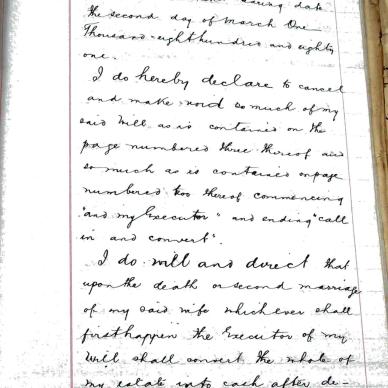 bearing date
the second day of March One
Thousand eight hundred and eighty
one.
I do hereby declare to cancel
and make void so much of my
said Will as is contained on the
page numbered three thereof and
so much as is contained on page
numbered two thereof commencing
"and my Executor" and ending "call
in and convert".
I do will and direct that
upon the death or second marriage
of my said wife which ever shall
first happen the Executor of my
Will shall convert the whole of
my estate into cash after de-